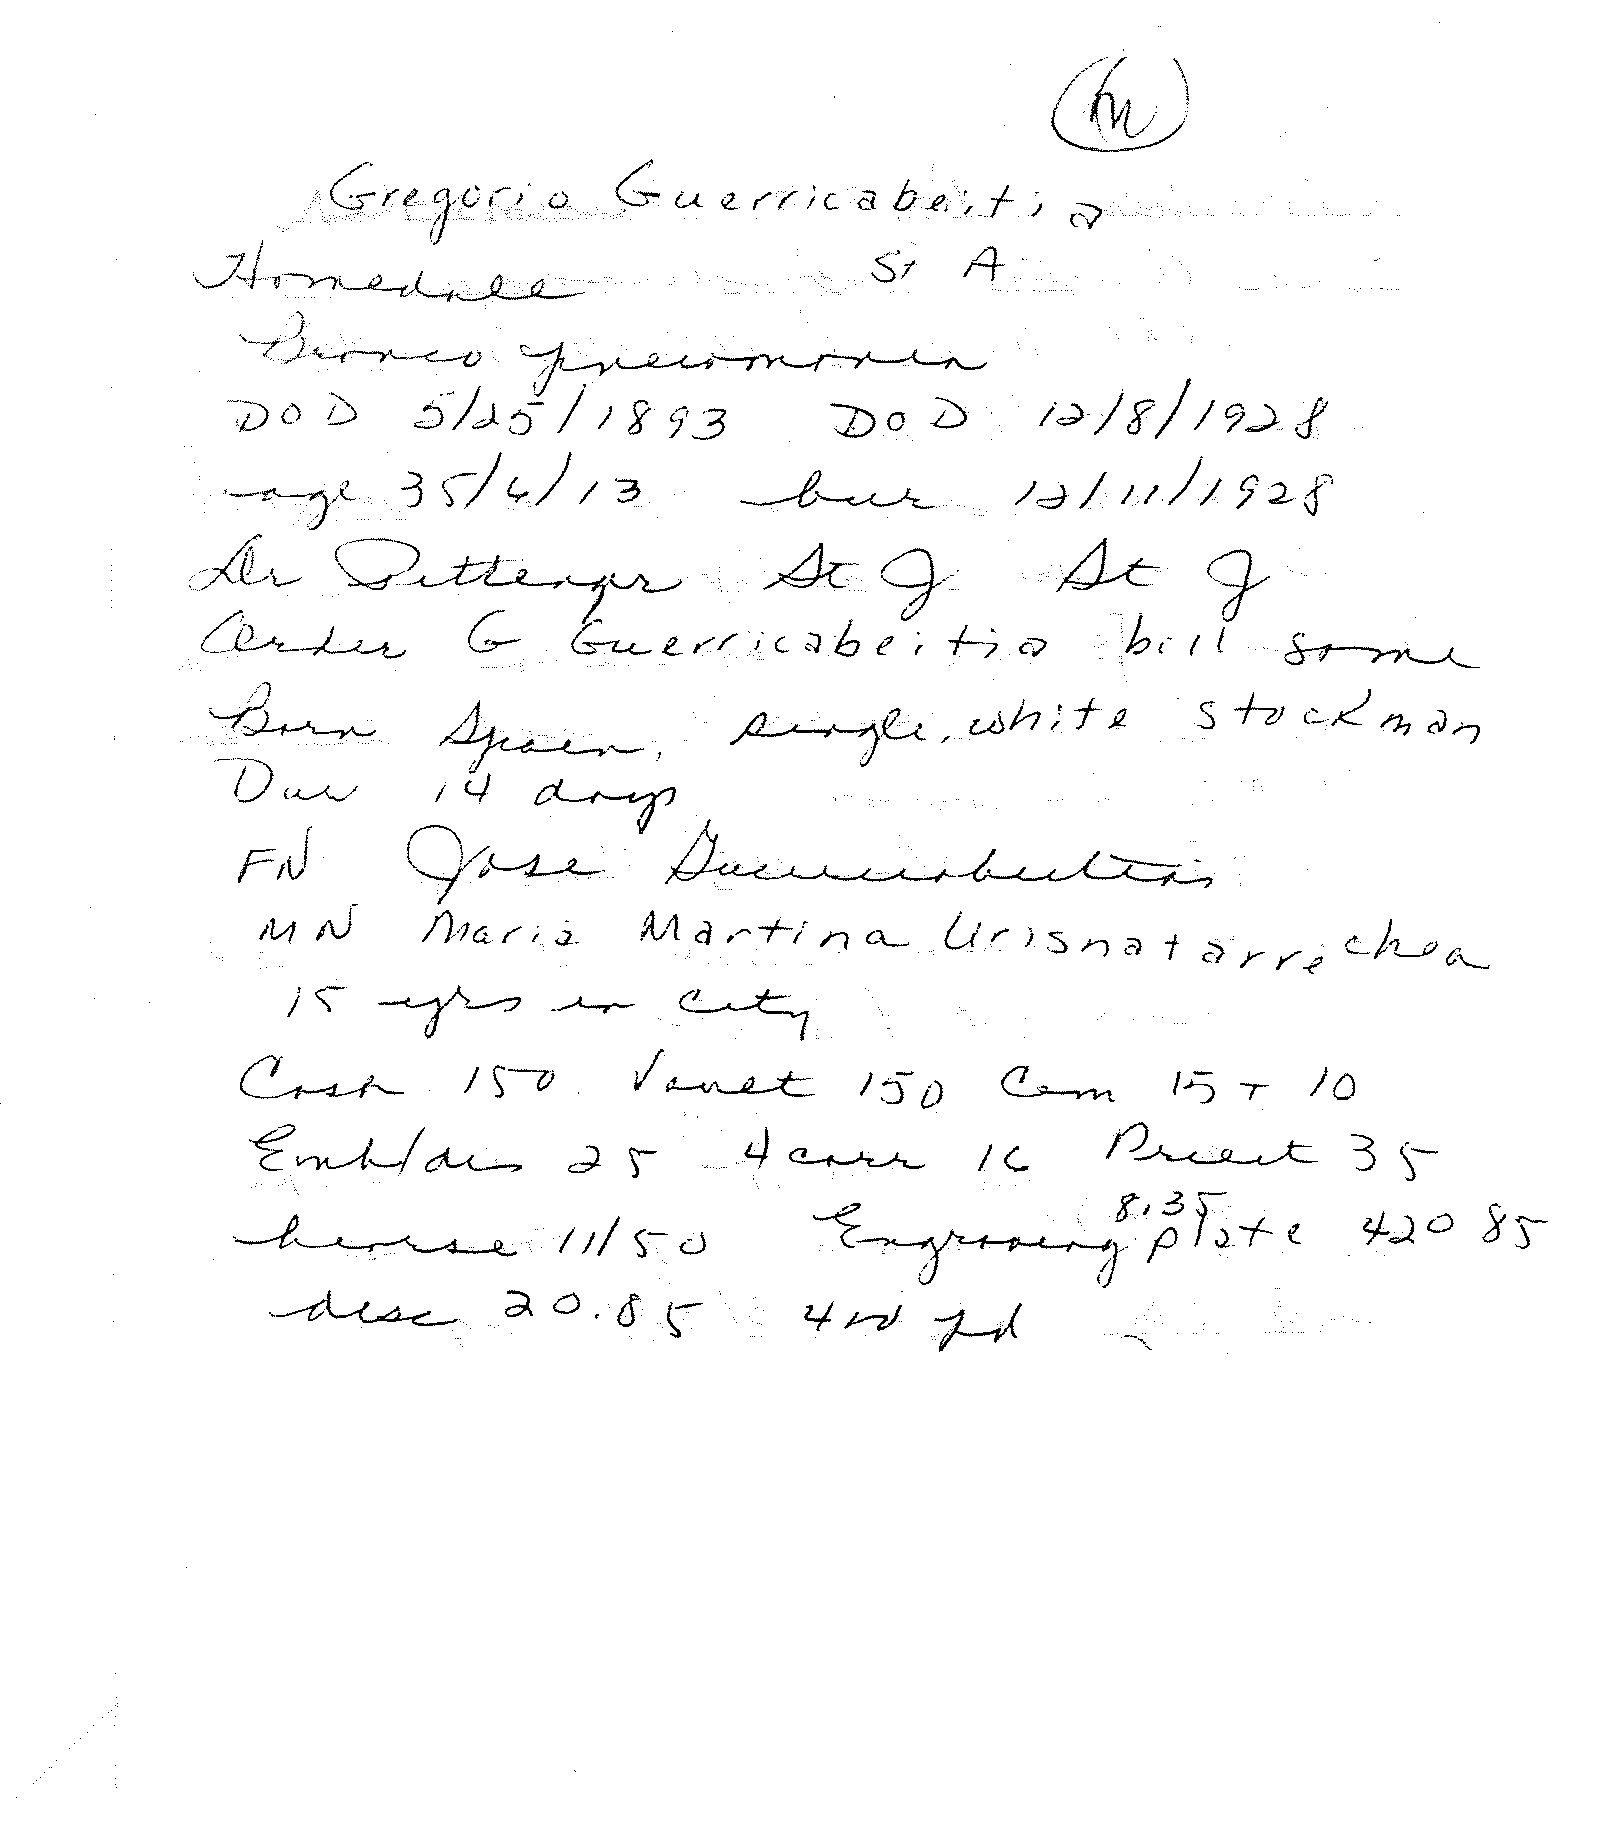 m
Gregorio Guerricabeitia
Homedale St A
Bronco pneumonia
DOD 5/25/1893 DOD 12/8/1928
age 35/6/13 bur 12/11/1928
Dr Pittenger St J St J
Order G Guerricabeitia bill same
Born Spain, single, white stockman
Dur 14 days
FN Jose
MN Maria Martina Urisnatarrechea
15 yrs in city
Cash 150 Vault 150 Cem 15 + 10
Emb/dis 25 4 carr 16 Priest 35
8.35
hearse 11/50 Engraving plate 420 85
disc 20.85 400 pd